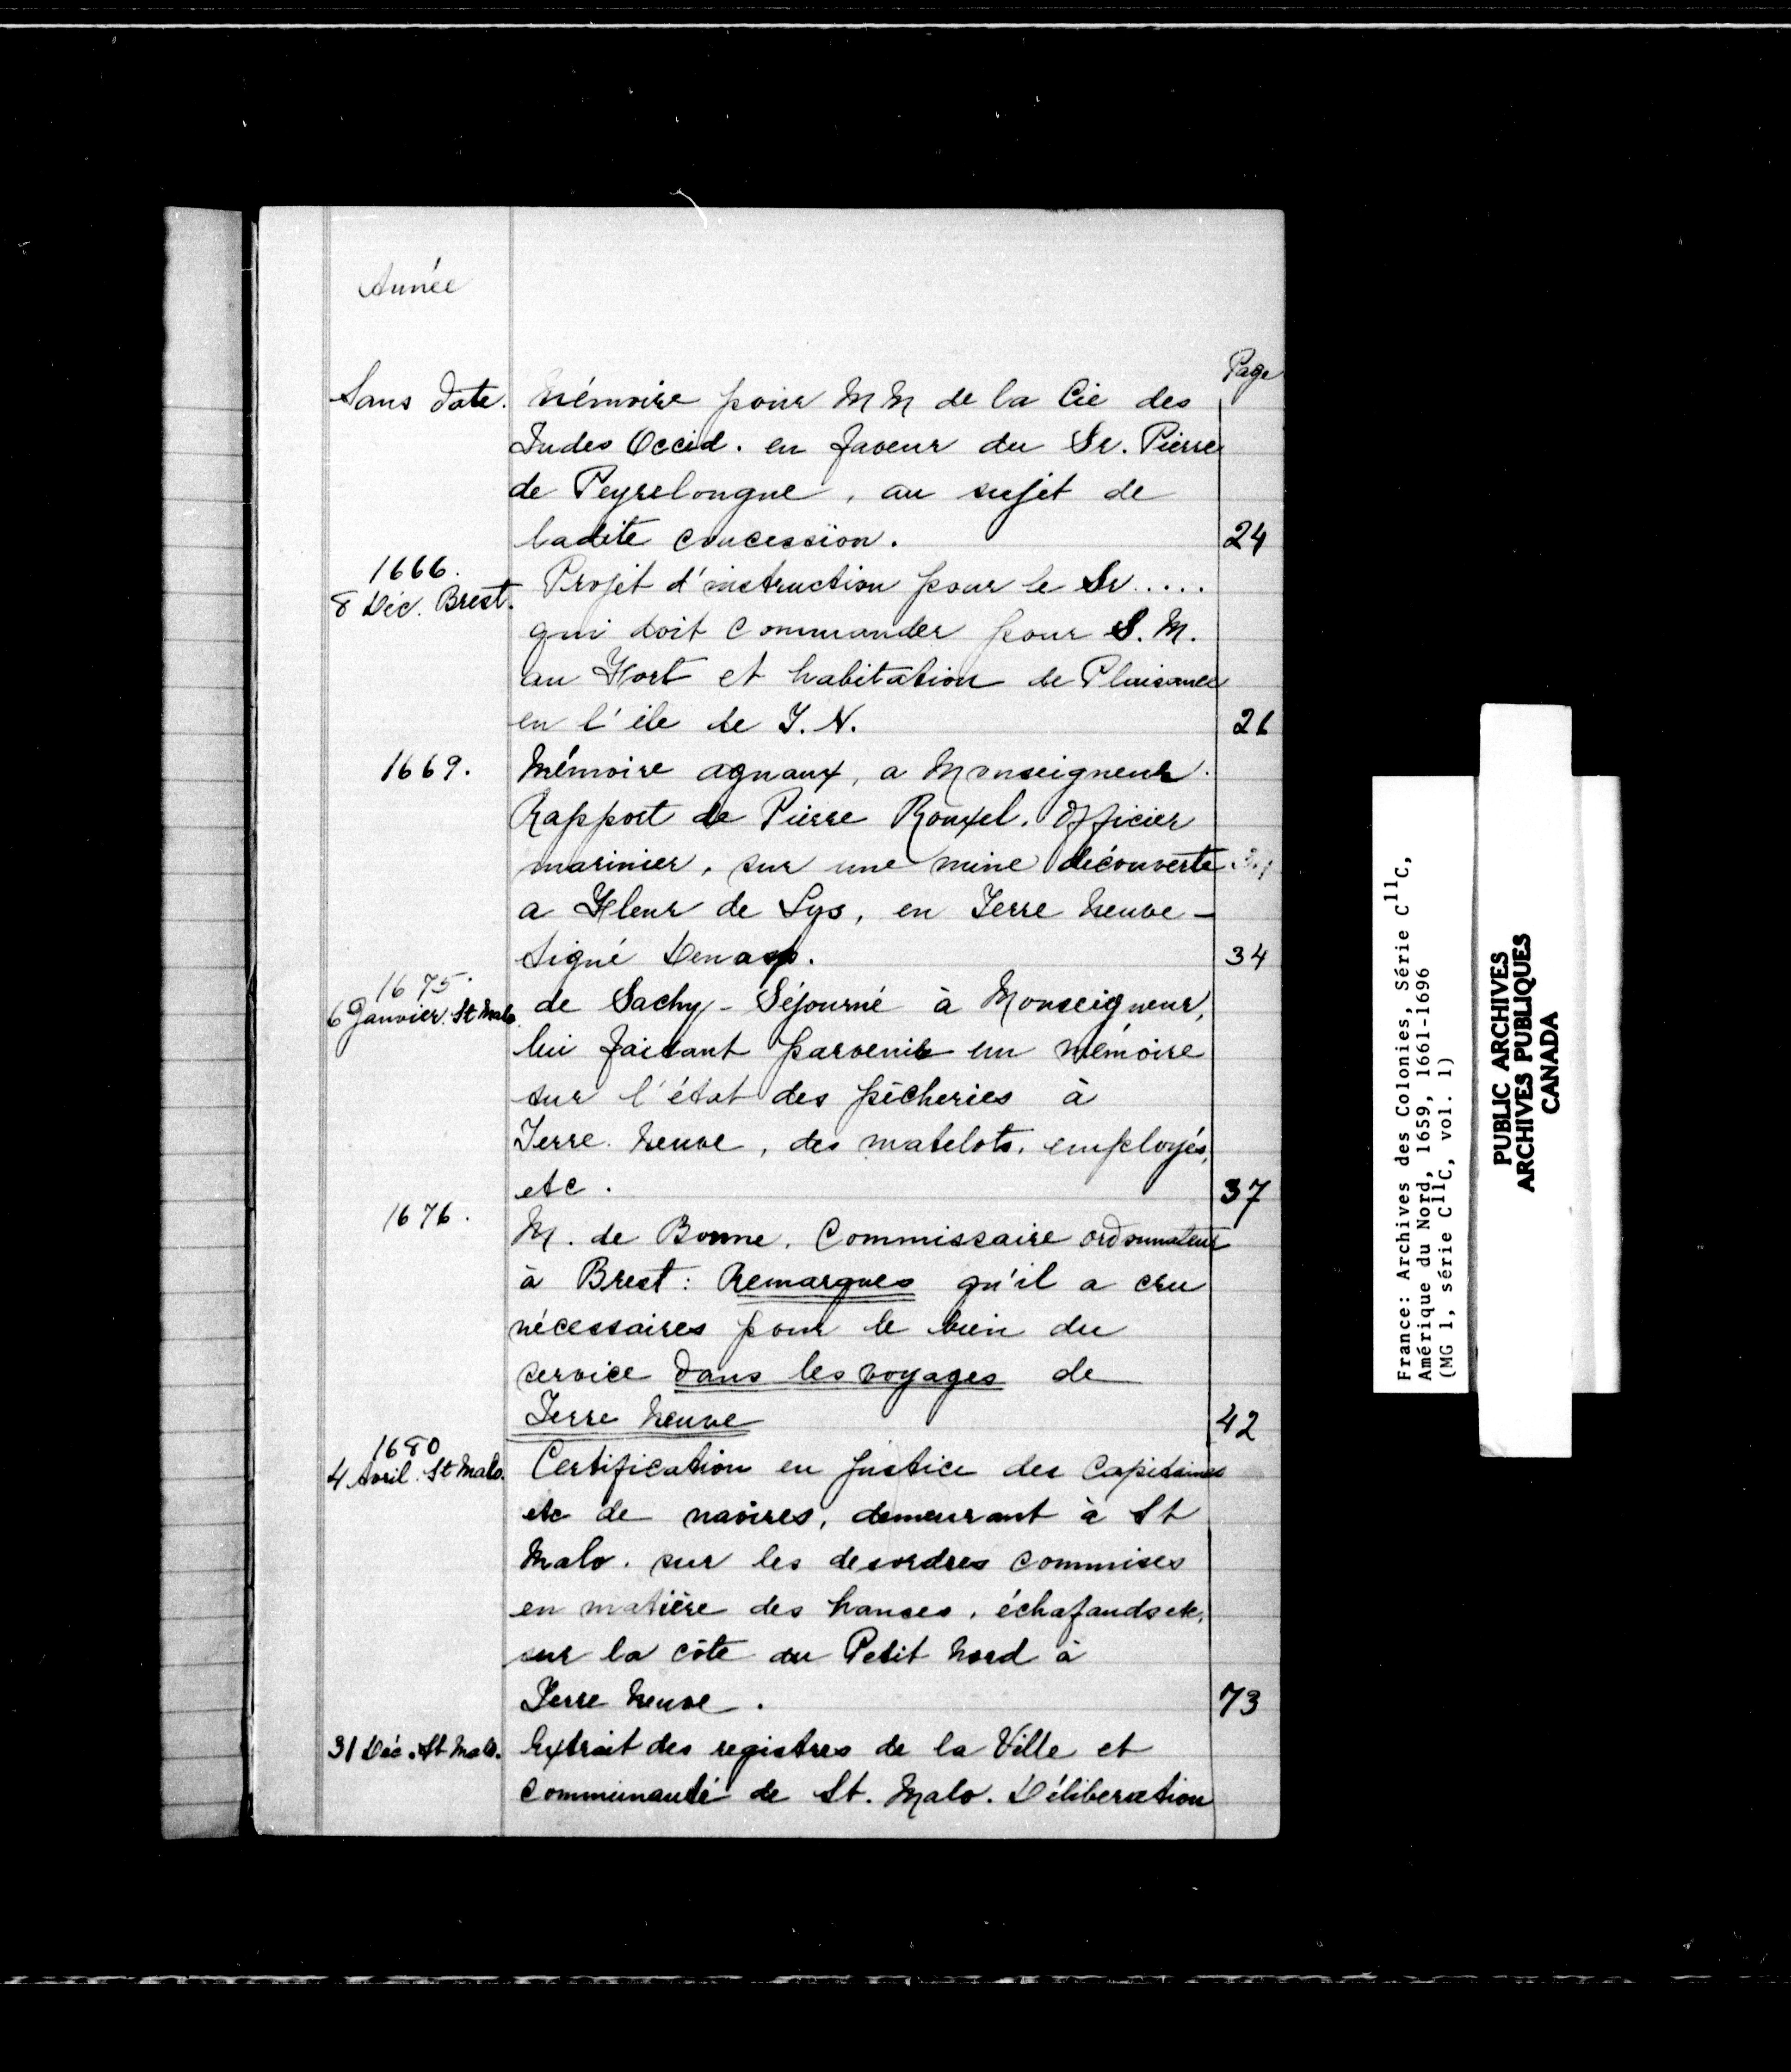 Année
Page
Sans date. Mémoire pour MM de la Cie des
Indes Occid. en faveur du Sr. Pierre
de Peyrelongue, au sujet de
ladite concession. 24
1666.
8 Déc. Brest. Projet d'instruction pour le Sr.....
qui doit commander pour S. M.
au Fort et habitation de Plaisance
en l'ile de T. N. 26
1669. Mémoire agnaux, a Monseigneur.
Rapport de Pierre Rouxel. Officier
marinier, sur une mine découverte
a Fleur de Lys, en Terre Neuve -
Signé Denasp. 34
1675.
6 Janvier. St Malo. de Sachy - Séjourné à Monseigneur,
lui faisant parvenir un mémoire
sur l'état des pêcheries à
Terre Neuve, des matelots. employés,
etc. 37
1676.
M. de Bonne. Commissaire ordonnateur
à Brest: Remarques qu'il a cru
nécessaires pour le bien du
service dans les voyages de
Terre Neuve 42
1680
4 Avril. St Malo. Certification en justice des Capitaines
etc de navires, demeurant à St
Malo. sur les desordres commises
en matière des hanses, échafauds etc,
sur la côte du Petit Nord à
Terre Neuve. 73
31 Déc. St Malo. Extrait des registres de la Ville et
Communauté de St. Malo. Déliberation
France: Archives des Colonies, Série C11C,
Amérique du Nord, 1659, 1661-1696
(MG 1, série C11C, vol. 1)
PUBLIC ARCHIVES
ARCHIVES PUBLIQUES
CANADA